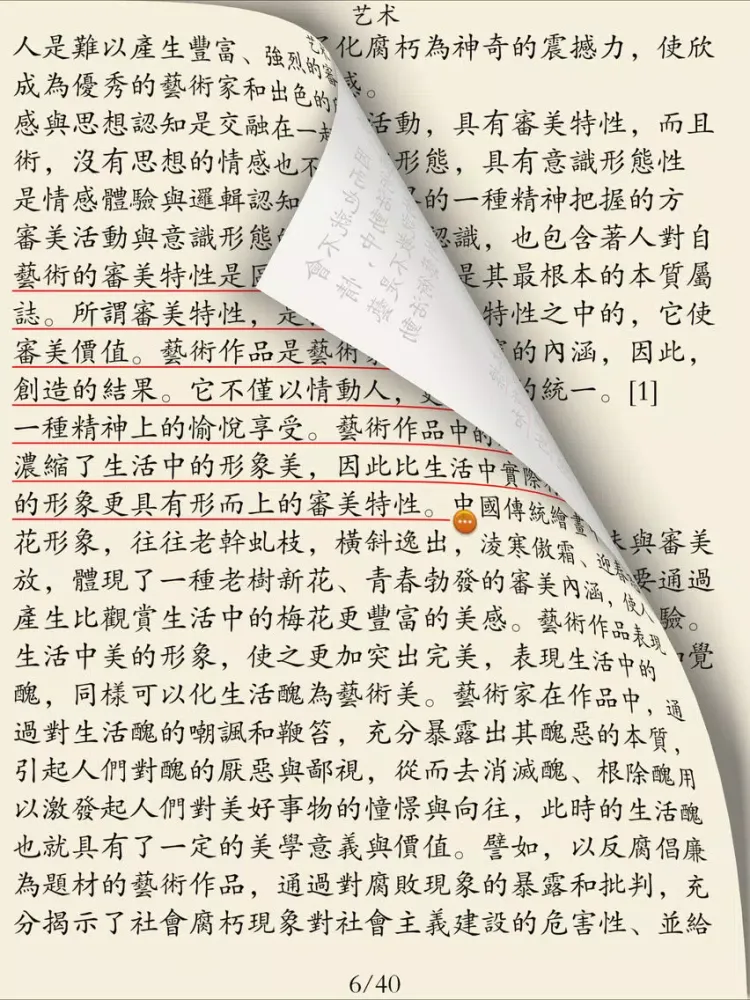 艺术
人是難以產生豐富、強烈的審 化腐朽為神奇的震撼力，使欣
成為優秀的藝術家和出色的 感。
感與思想認知是交融在一起 活動，具有審美特性，而且
術，沒有思想的情感也不 形態，具有意識形態性
是情感體驗與邏輯認知 的一種精神把握的方
審美活動與意識形態的 認識，也包含著人對自
藝術的審美特性是 是其最根本的本質屬
誌。所謂審美特性，是 特性之中的，它使
審美價值。藝術作品是藝術家 的內涵，因此，
創造的結果。它不僅以情動人，更 的統一。[1]
一種精神上的愉悅享受。藝術作品中的
濃縮了生活中的形象美，因此比生活中實際
的形象更具有形而上的審美特性。中國傳統繪畫 與審美
花形象，往往老幹虬枝，橫斜逸出，淩寒傲霜、迎春 要通過
放，體現了一種老樹新花、青春勃發的審美內涵，使人 驗。
產生比觀賞生活中的梅花更豐富的美感。藝術作品表現 覺
生活中美的形象，使之更加突出完美，表現生活中的
醜，同樣可以化生活醜為藝術美。藝術家在作品中，通
過對生活醜的嘲諷和鞭笞，充分暴露出其醜惡的本質，
引起人們對醜的厭惡與鄙視，從而去消滅醜、根除醜用
以激發起人們對美好事物的憧憬與向往，此時的生活醜
也就具有了一定的美學意義與價值。譬如，以反腐倡廉
為題材的藝術作品，通過對腐敗現象的暴露和批判，充
分揭示了社會腐朽現象對社會主義建設的危害性、並給
6/40